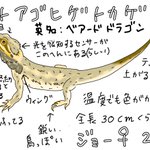 トアゴヒゲトカゲ
英名：ベアードドラゴン
光を感知するセンサーが
このへんにある(らしい)
テ
上がる
ウィング
温度でも色がか
ってる
鋭い
鳥っぽい
全長30cmくら
ジョー♀2